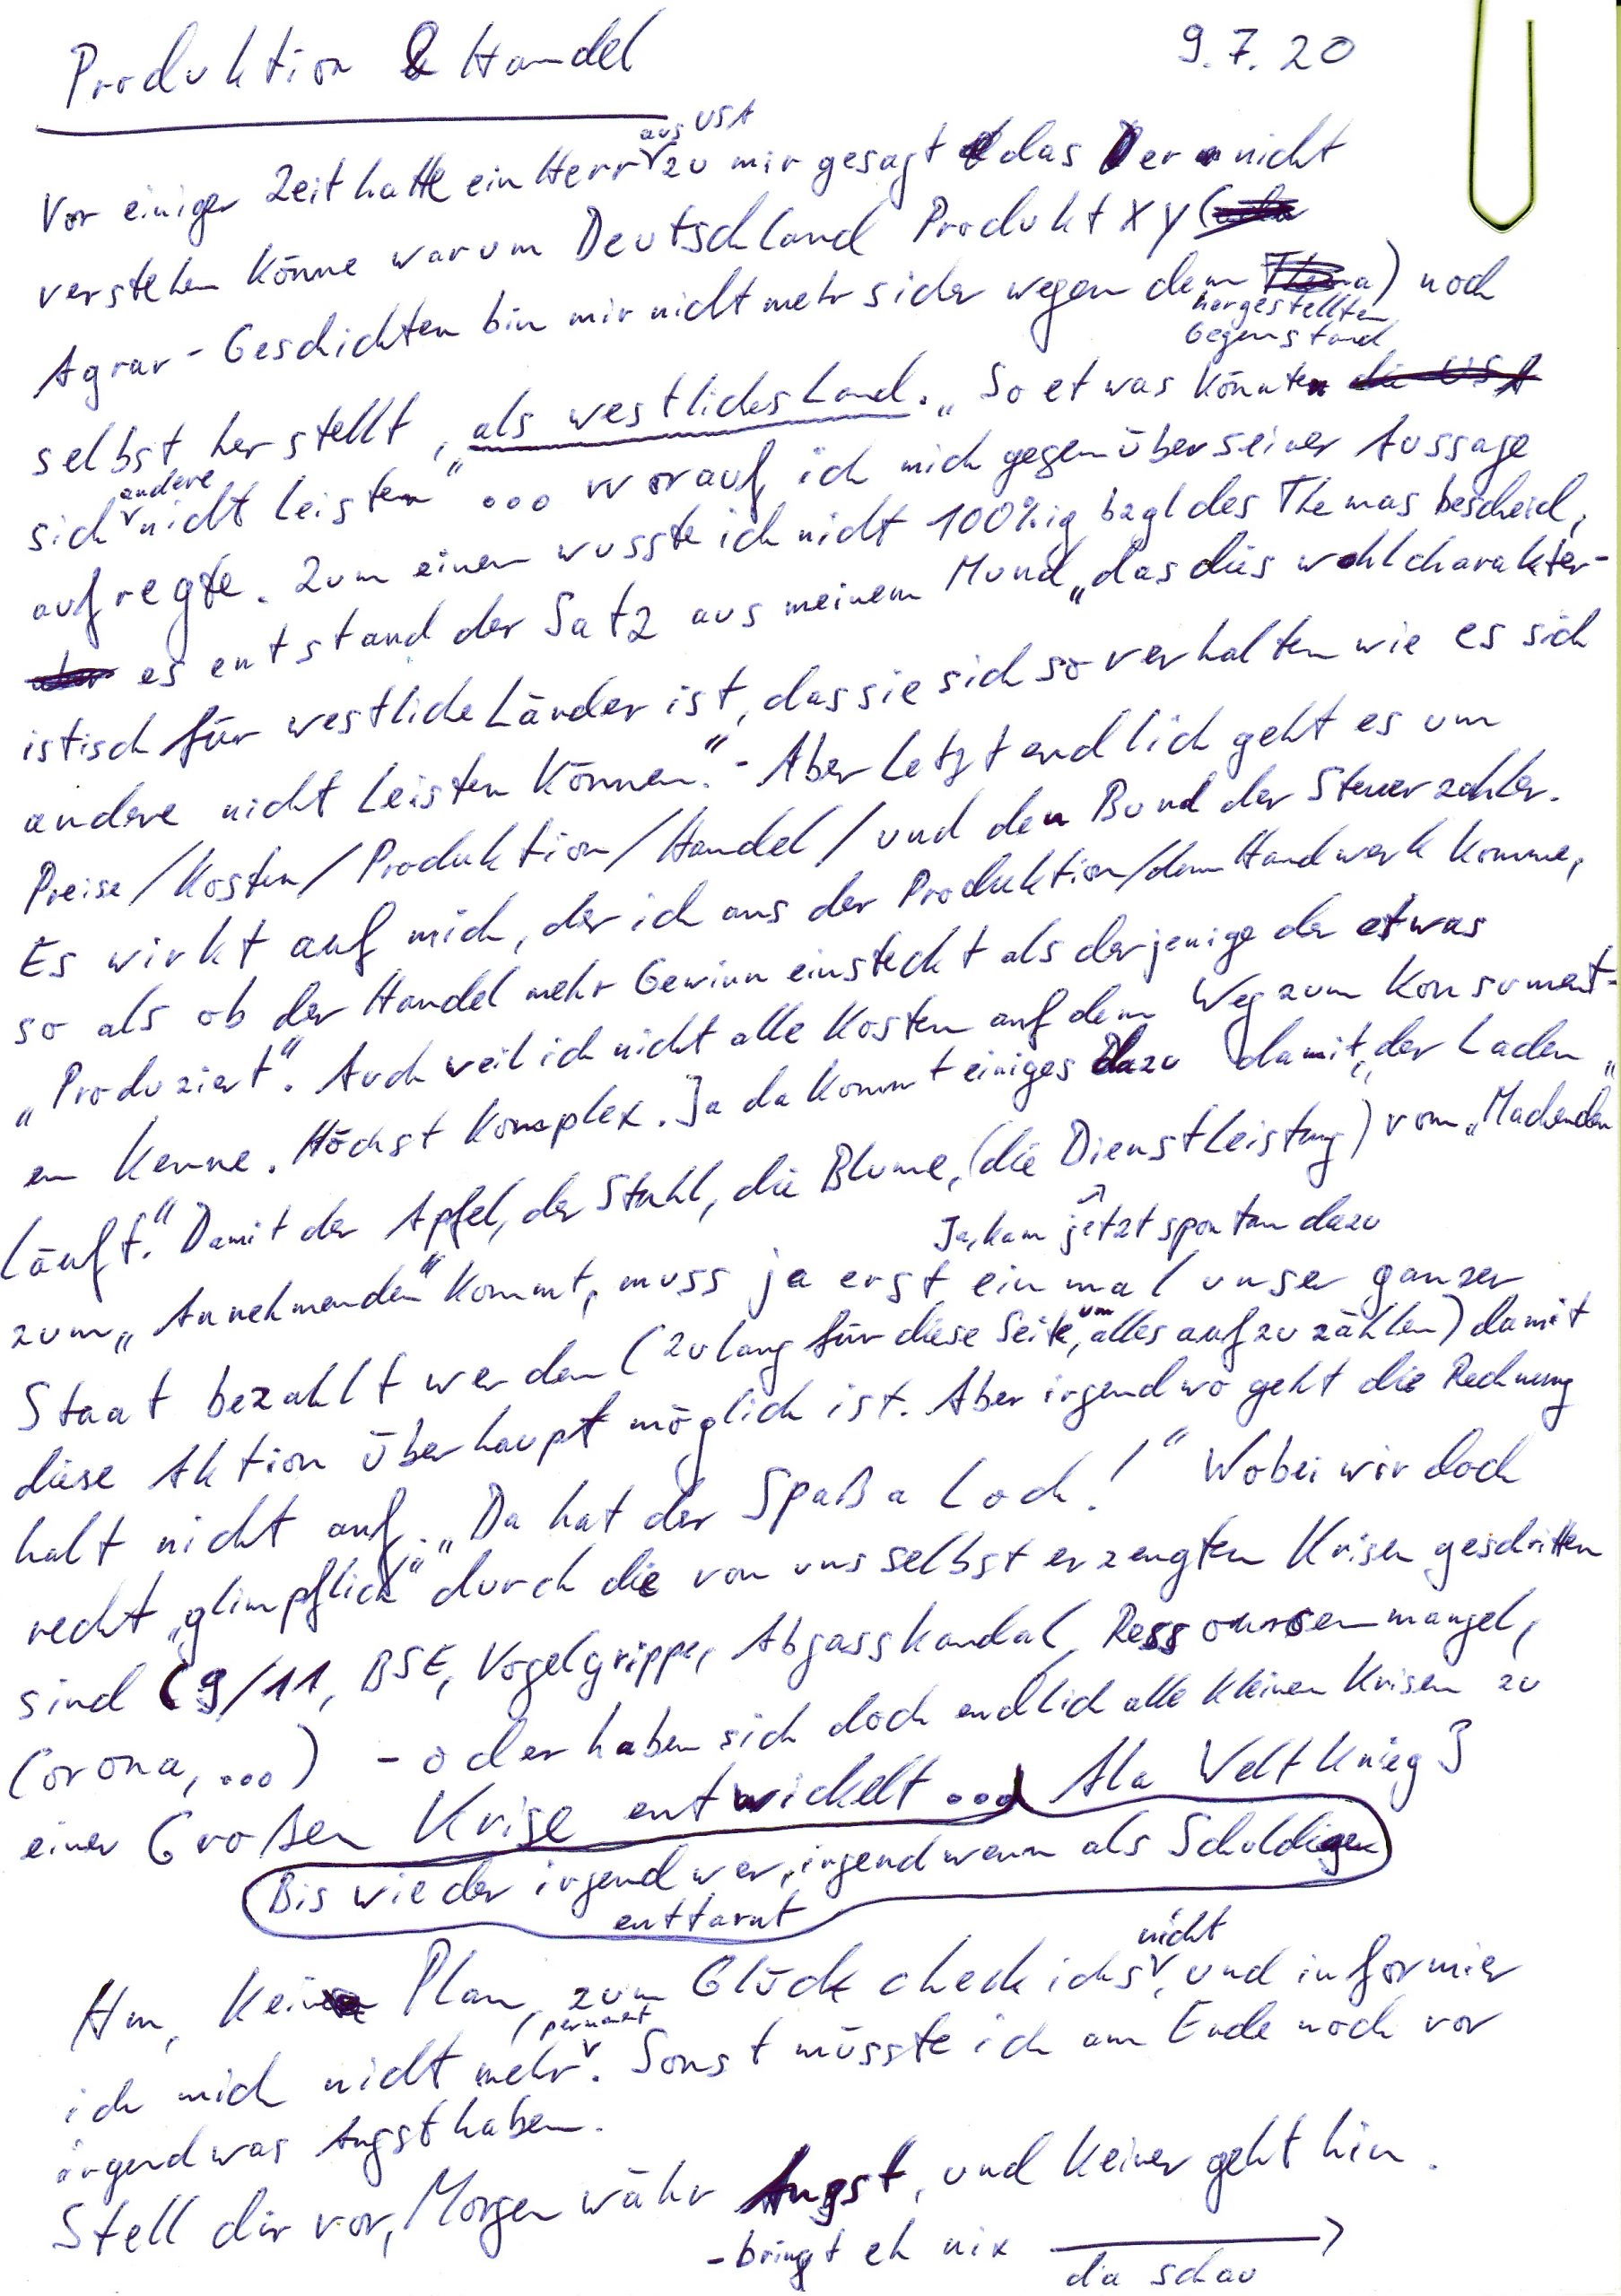 Produktion & Handel
9.7.20
aus USA
Vor einiger Zeit hatte ein Herr zu mir gesagt das Er nicht
verstehen könne warum Deutschland Produkt XY (
Agrar-Geschichten bin mir nicht mehr sicher wegen dem ) noch
hergestellten
Gegenstand
selbst herstellt, „als westliches Land. „So etwas könnten die USA
andere
sich nicht leisten" ... worauf ich mich gegenüber seiner Aussage
aufregte. Zum einen wusste ich nicht 100%ig bzgl des Themas bescheid,
aber es entstand der Satz aus meinem Mund „das dies wohl charakter-
istisch für westliche Länder ist, das sie sich so verhalten wie es sich
andere nicht leisten können." - Aber letztendlich geht es um
Preise/Kosten/Produktion/Handel/und den Bund der Steuerzahler.
Es wirkt auf mich, der ich aus der Produktion/dem Handwerk komme,
so als ob der Handel mehr Gewinn einsteckt als derjenige der etwas
„Produziert". Auch weil ich nicht alle Kosten auf dem Weg zum Konsument-
en kenne. Höchst komplex. Ja da kommt einiges Dazu damit „der Laden
läuft." Damit der Apfel, der Stahl, die Blume, (die Dienstleistung) vom „Machenden"
Ja, kam jetzt spontan dazu
zum „Annehmenden" kommt, muss ja erst einmal unser ganzer
Staat bezahlt werden (zu lang für diese Seite, um alles aufzuzählen) damit
diese Aktion überhaupt möglich ist. Aber irgendwo geht die Rechnung
halt nicht auf. „Da hat der Spaß a Loch!" Wobei wir doch
recht „glimpflich" durch die von uns selbst erzeugten Krisen geschritten
sind (9/11, BSE, Vogelgrippe, Abgasskandal, Ressoursenmangel,
Corona, ...) - oder haben sich doch endlich alle kleinen Krisen zu
einer Großen Krise entwickelt ... Ala Weltkrieg 3
Bis wieder irgendwer, irgendwann als Schuldigen
enttarnt
nicht
Hm, kein Plan, zum Glück check ichs, und informier
permanent
ich mich nicht mehr. Sonst müsste ich am Ende noch vor
irgendwas Angst haben.
Stell dir vor, Morgen währ Angst, und keiner geht hin.
- bringt eh nix
da schau